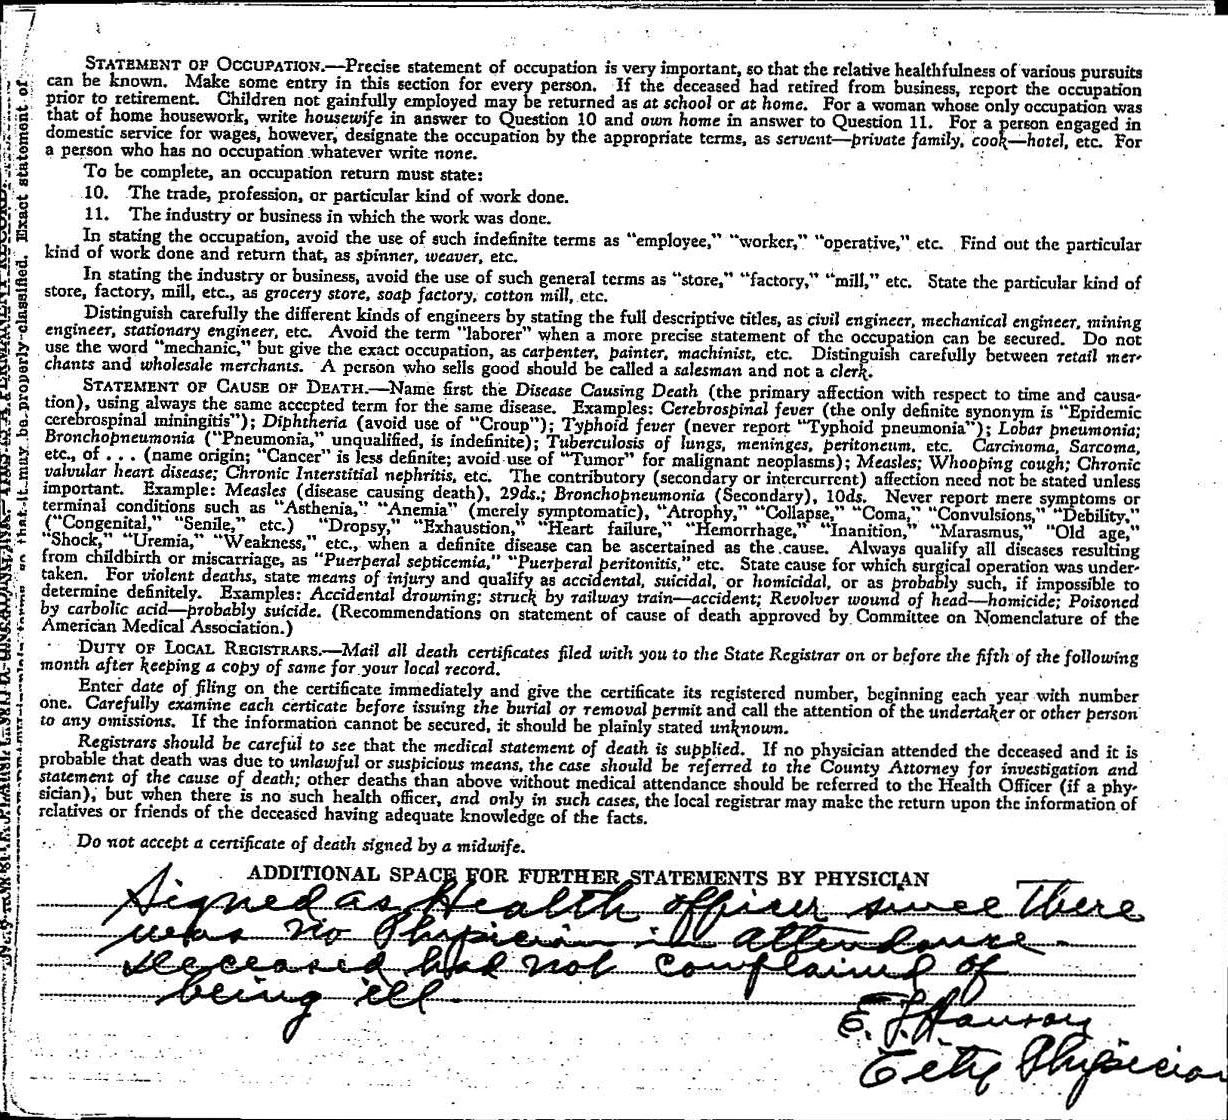 STATEMENT OF OCCUPATION.—Precise statement of occupation is very important, so that the relative healthfulness of various pursuits
can be known. Make some entry in this section for every person. If the deceased had retired from business, report the occupation
prior to retirement. Children not gainfully employed may be returned as at school or at home. For a woman whose only occupation was
that of home housework, write housewife in answer to Question 10 and own home in answer to Question 11. For a person engaged in
domestic service for wages, however, designate the occupation by the appropriate terms, as servant—private family, cook—hotel, etc. For
a person who has no occupation whatever write none.
To be complete, an occupation return must state:
10. The trade, profession, or particular kind of work done.
11. The industry or business in which the work was done.
In stating the occupation, avoid the use of such indefinite terms as "employee," "worker," "operative," etc. Find out the particular
kind of work done and return that, as spinner, weaver, etc.
In stating the industry or business, avoid the use of such general terms as "store," "factory," "mill," etc. State the particular kind of
store, factory, mill, etc., as grocery store, soap factory, cotton mill, etc.
Distinguish carefully the different kinds of engineers by stating the full descriptive titles, as civil engineer, mechanical engineer, mining
engineer, stationary engineer, etc. Avoid the term "laborer" when a more precise statement of the occupation can be secured. Do not
use the word "mechanic," but give the exact occupation, as carpenter, painter, machinist, etc. Distinguish carefully between retail mer-
chants and wholesale merchants. A person who sells good should be called a salesman and not a clerk.
STATEMENT OF CAUSE OF DEATH.—Name first the Disease Causing Death (the primary affection with respect to time and causa-
tion), using always the same accepted term for the same disease. Examples: Cerebrospinal fever (the only definite synonym is "Epidemic
cerebrospinal miningitis"); Diphtheria (avoid use of "Croup"); Typhoid fever (never report "Typhoid pneumonia"); Lobar pneumonia;
Bronchopneumonia ("Pneumonia," unqualified, is indefinite); Tuberculosis of lungs, meninges, peritoneum, etc. Carcinoma, Sarcoma,
etc., of . . . (name origin; "Cancer" is less definite; avoid use of "Tumor" for malignant neoplasms); Measles; Whooping cough; Chronic
valvular heart disease; Chronic Interstitial nephritis, etc. The contributory (secondary or intercurrent) affection need not be stated unless
important. Example: Measles (disease causing death), 29ds.; Bronchopneumonia (Secondary), 10ds. Never report mere symptoms or
terminal conditions such as "Asthenia," "Anemia" (merely symptomatic), "Atrophy," "Collapse," "Coma," "Convulsions," "Debility,"
("Congenital," "Senile," etc.) "Dropsy," "Exhaustion," "Heart failure," "Hemorrhage," "Inanition," "Marasmus," "Old age,"
"Shock," "Uremia," "Weakness," etc., when a definite disease can be ascertained as the cause. Always qualify all diseases resulting
from childbirth or miscarriage, as "Puerperal septicemia," "Puerperal peritonitis," etc. State cause for which surgical operation was under-
taken. For violent deaths, state means of injury and qualify as accidental, suicidal, or homicidal, or as probably such, if impossible to
determine definitely. Examples: Accidental drowning; struck by railway train—accident; Revolver wound of head—homicide; Poisoned
by carbolic acid—probably suicide. (Recommendations on statement of cause of death approved by Committee on Nomenclature of the
American Medical Association.)
DUTY OF LOCAL REGISTRARS.—Mail all death certificates filed with you to the State Registrar on or before the fifth of the following
month after keeping a copy of same for your local record.
Enter date of filing on the certificate immediately and give the certificate its registered number, beginning each year with number
one. Carefully examine each certicate before issuing the burial or removal permit and call the attention of the undertaker or other person
to any omissions. If the information cannot be secured, it should be plainly stated unknown.
Registrars should be careful to see that the medical statement of death is supplied. If no physician attended the deceased and it is
probable that death was due to unlawful or suspicious means, the case should be referred to the County Attorney for investigation and
statement of the cause of death; other deaths than above without medical attendance should be referred to the Health Officer (if a phy-
sician), but when there is no such health officer, and only in such cases, the local registrar may make the return upon the information of
relatives or friends of the deceased having adequate knowledge of the facts.
Do not accept a certificate of death signed by a midwife.
ADDITIONAL SPACE FOR FURTHER STATEMENTS BY PHYSICIAN
Signed as Health officer since there
was no Physician in attendance.
deceased had not complained of
being ill.
E. J. Hanson
City Physician
may be properly classified. Exact statement of